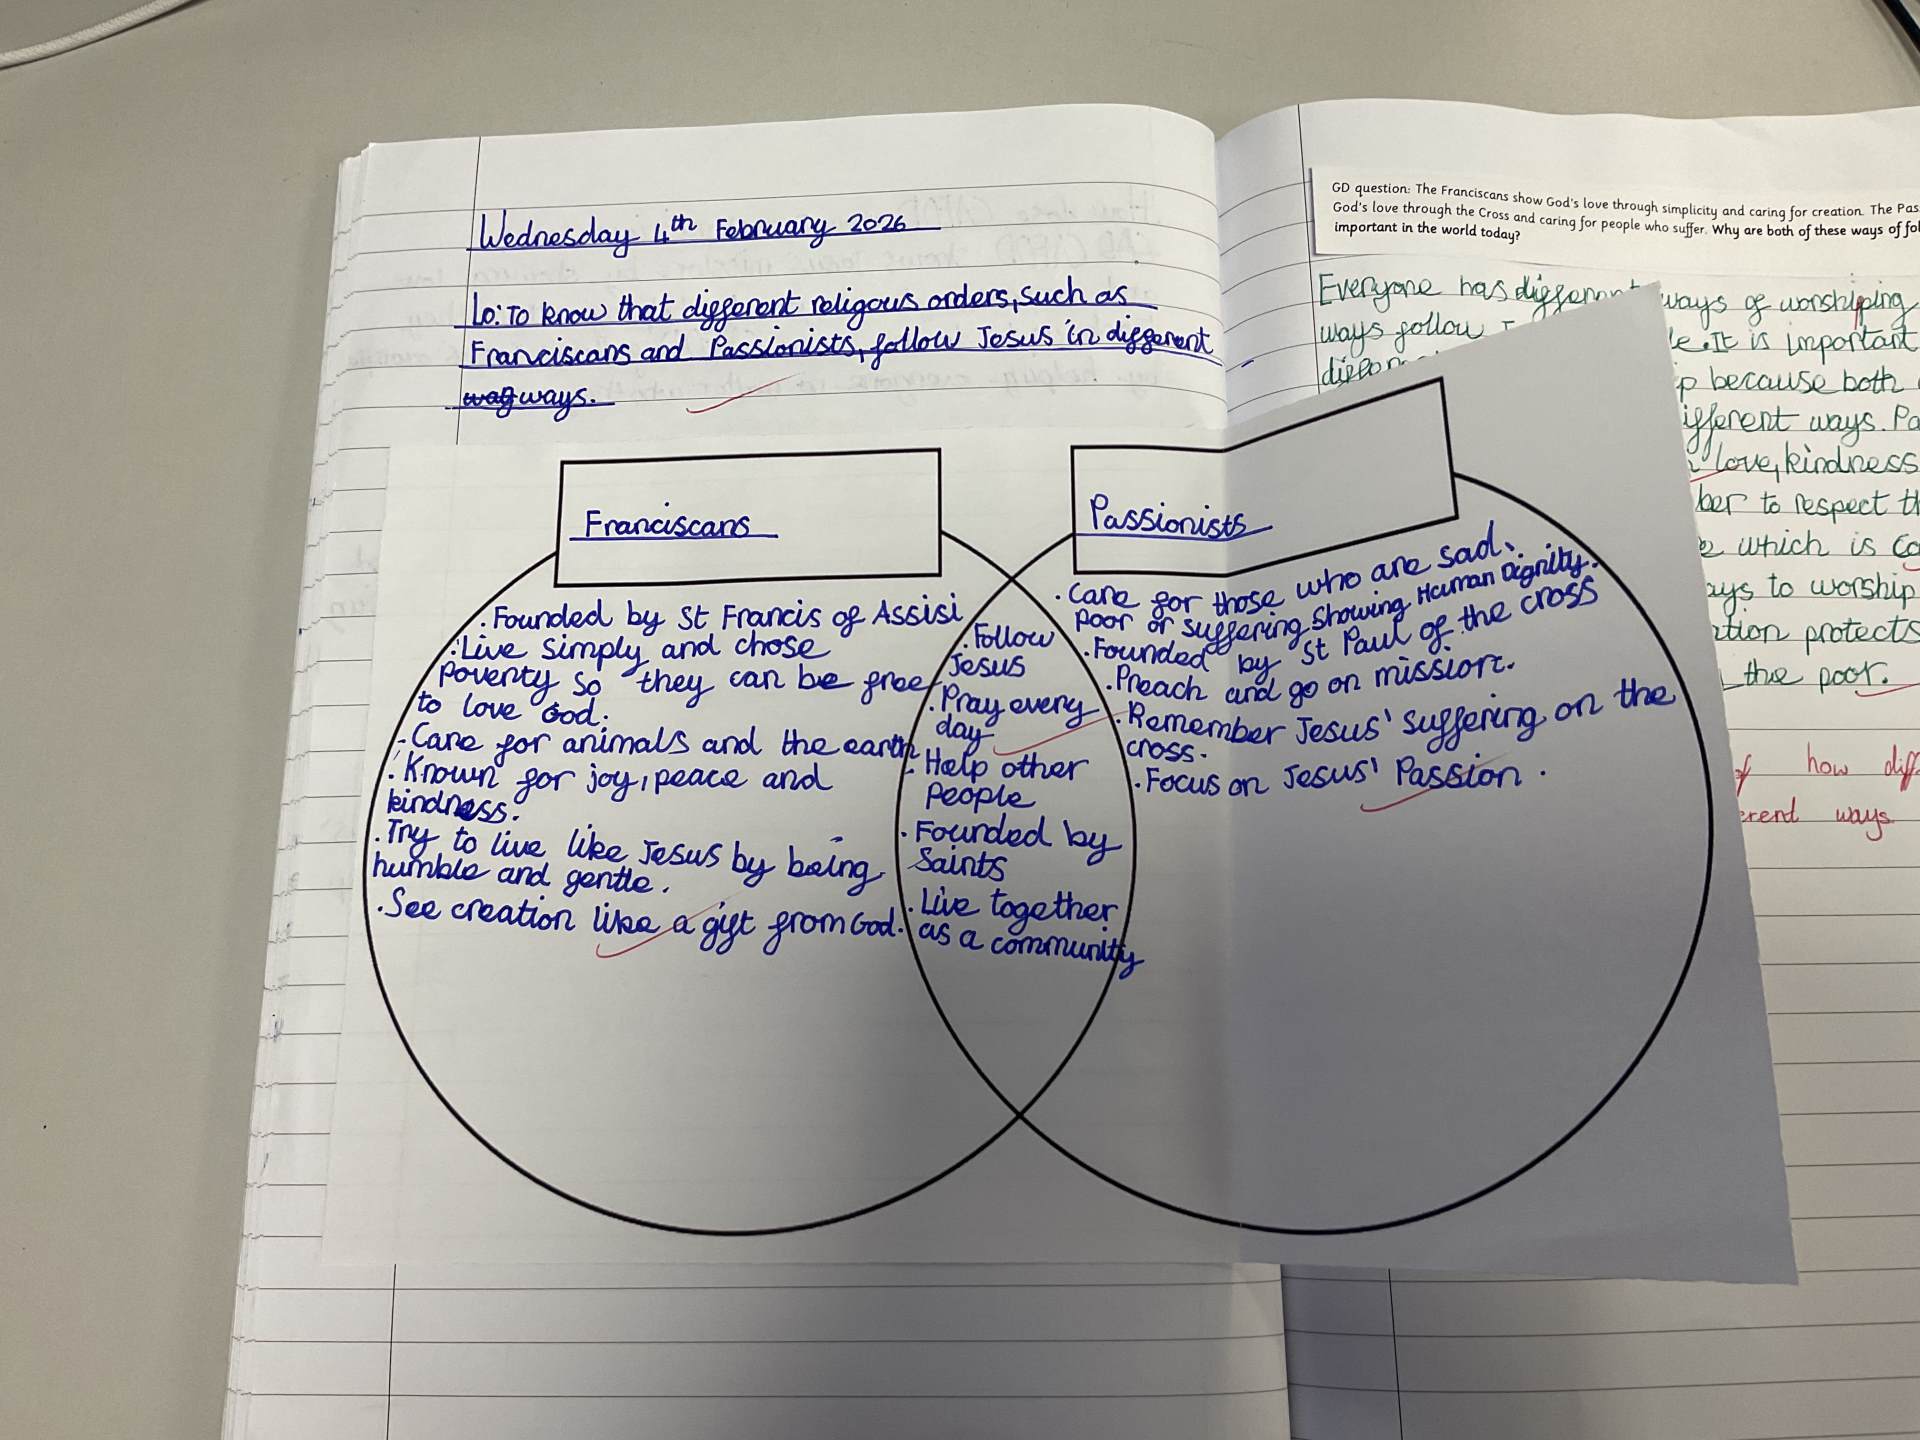 Wednesday 4th February 2026
LO: To know that different religous orders, such as
Franciscans and Passionists, follow Jesus in different
ways.
Franciscans
. Founded by St Francis of Assisi
. Live simply and chose
poverty so they can be free
to love God.
. Care for animals and the earth
. Known for joy, peace and
kindness.
. Try to live like Jesus by being
humble and gentle.
. See creation like a gift from God.
. Follow
Jesus
. Pray every
day
. Help other
people
. Founded by
Saints
. Live together
as a community
Passionists
. Care for those who are sad,
poor or suffering showing Human Dignity.
. Founded by St Paul of the cross
. Preach and go on mission.
. Remember Jesus' suffering on the
cross.
. Focus on Jesus' Passion.
GD question: The Franciscans show God's love through simplicity and caring for creation. The Pas
God's love through the Cross and caring for people who suffer. Why are both of these ways of fol
important in the world today?
Everyone has different ways of worshipping
ways follow
It is important
because both
different ways.
love, kindness
to respect
which is
to worship
protects
the poor.
how
ways.